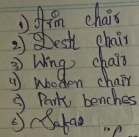 1) Arm chair
2) Desk chair
3) Wing chair
4) Wooden chair
5) Park benches
6) Sofas